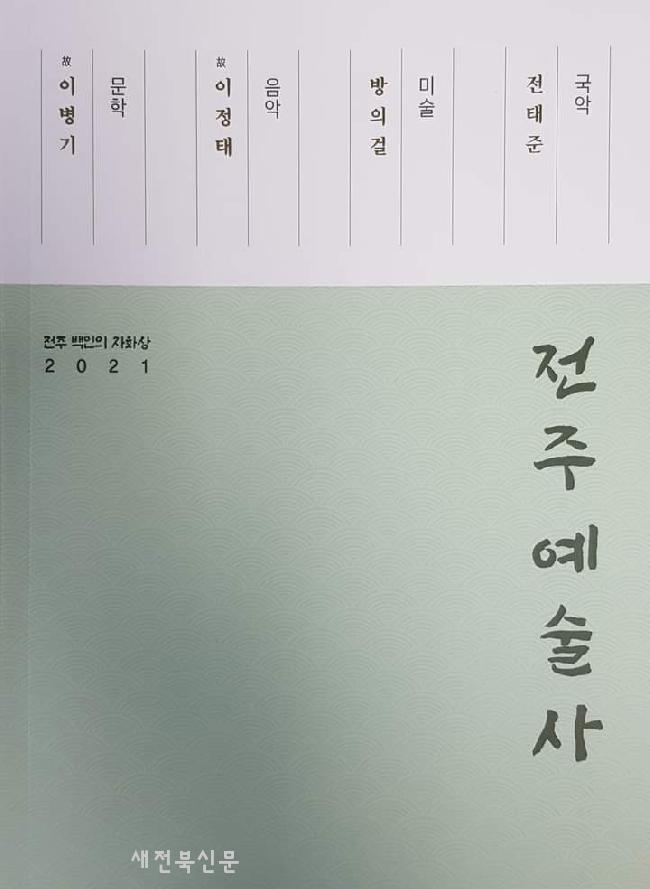 국악
전태준
미술
방의걸
음악
故 이정태
문학
故 이병기
전주 백인의 자화상
2021
전주예술사
새전북신문